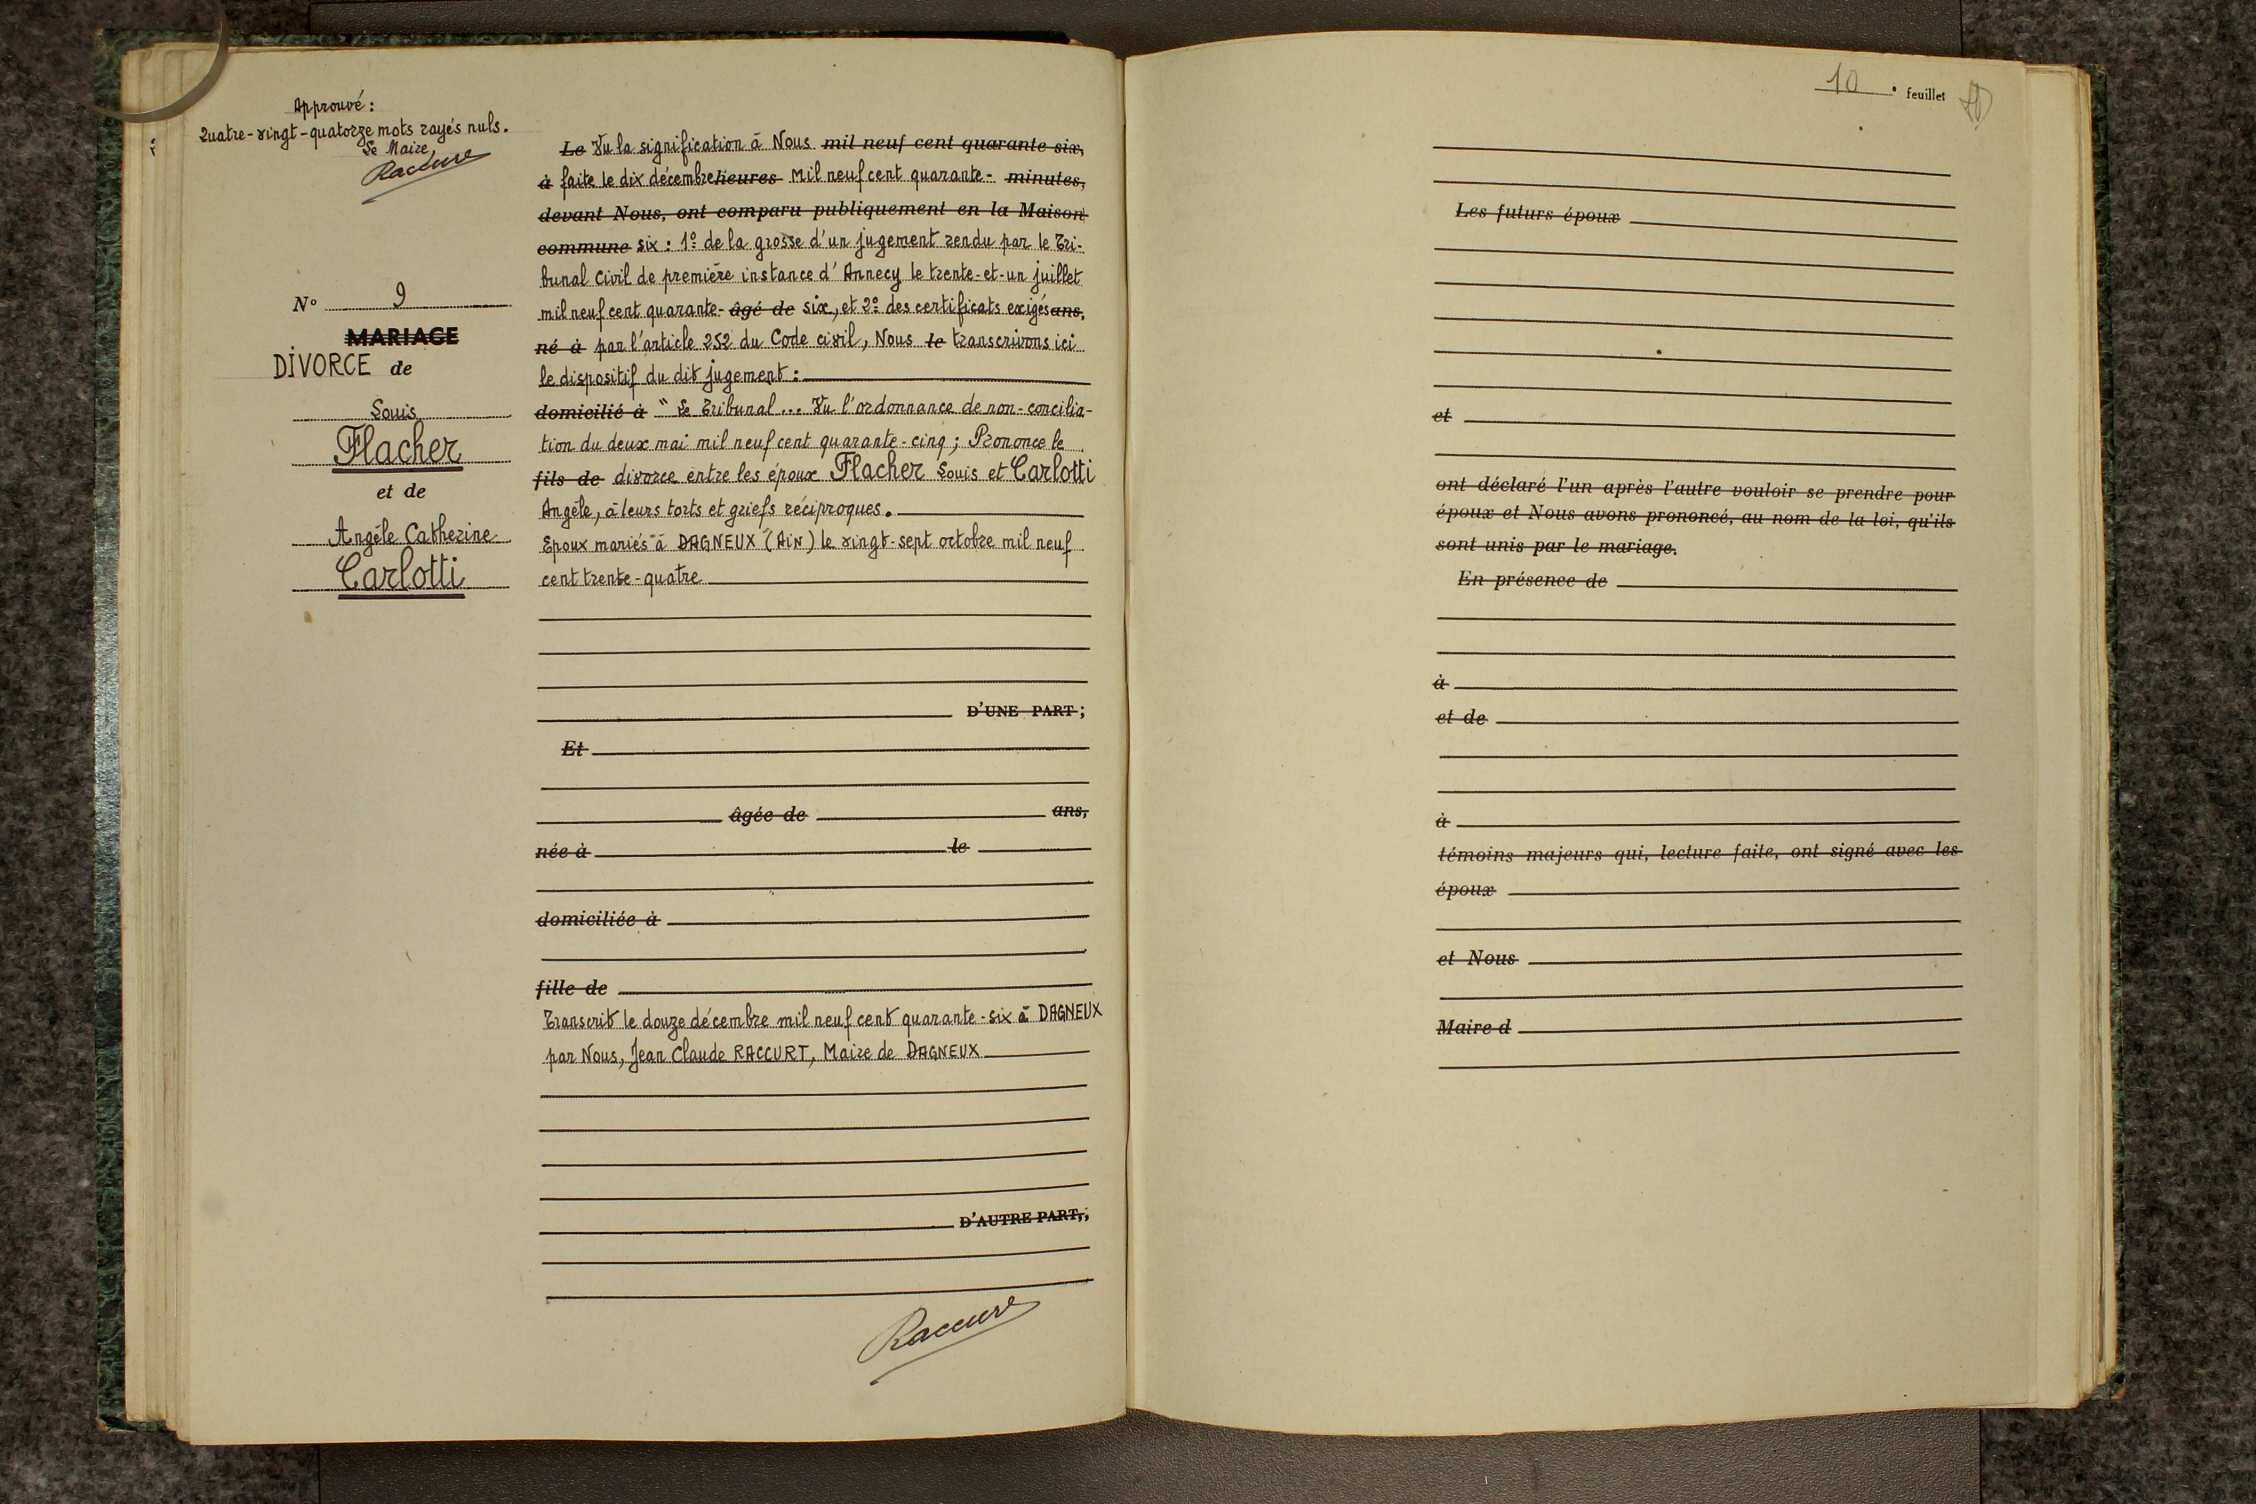 Approuvé :
Quatre-vingt-quatorze mots rayés nuls.
Le Maire,
Raccurt
N° 9
MARIAGE
DIVORCE de
Louis
Flacher
et de
Angèle Catherine
Carlotti
Le Vu la signification à Nous mil neuf cent quarante-six,
à faite le dix décembre heures Mil neuf cent quarante- minutes,
devant Nous, ont comparu publiquement en la Maison
commune six : 1° de la grosse d'un jugement rendu par le Tri-
bunal Civil de première instance d'Annecy le trente-et-un juillet
mil neuf cent quarante- âgé de six, et 2° des certificats exigés ans,
né à par l'article 252 du Code civil, Nous le transcrivons ici
le dispositif du dit jugement :
domicilié à " Le Tribunal ... Vu l'ordonnance de non-concilia-
tion du deux mai mil neuf cent quarante-cinq ; Prononce le
fils de divorce entre les époux Flacher Louis et Carlotti
Angèle, à leurs torts et griefs réciproques.
Epoux mariés à DAGNEUX (AIN) le vingt-sept octobre mil neuf
cent trente-quatre
D'UNE PART ;
Et
âgée de ans,
née à le
domiciliée à
fille de
Transcrit le douze décembre mil neuf cent quarante-six à DAGNEUX
par Nous, Jean Claude RACCURT, Maire de DAGNEUX
D'AUTRE PART,;
Raccurt
10 e feuillet
Les futurs époux
et
ont déclaré l'un après l'autre vouloir se prendre pour
époux et Nous avons prononcé, au nom de la loi, qu'ils
sont unis par le mariage.
En présence de
à
et de
à
témoins majeurs qui, lecture faite, ont signé avec les
époux
et Nous
Maire d